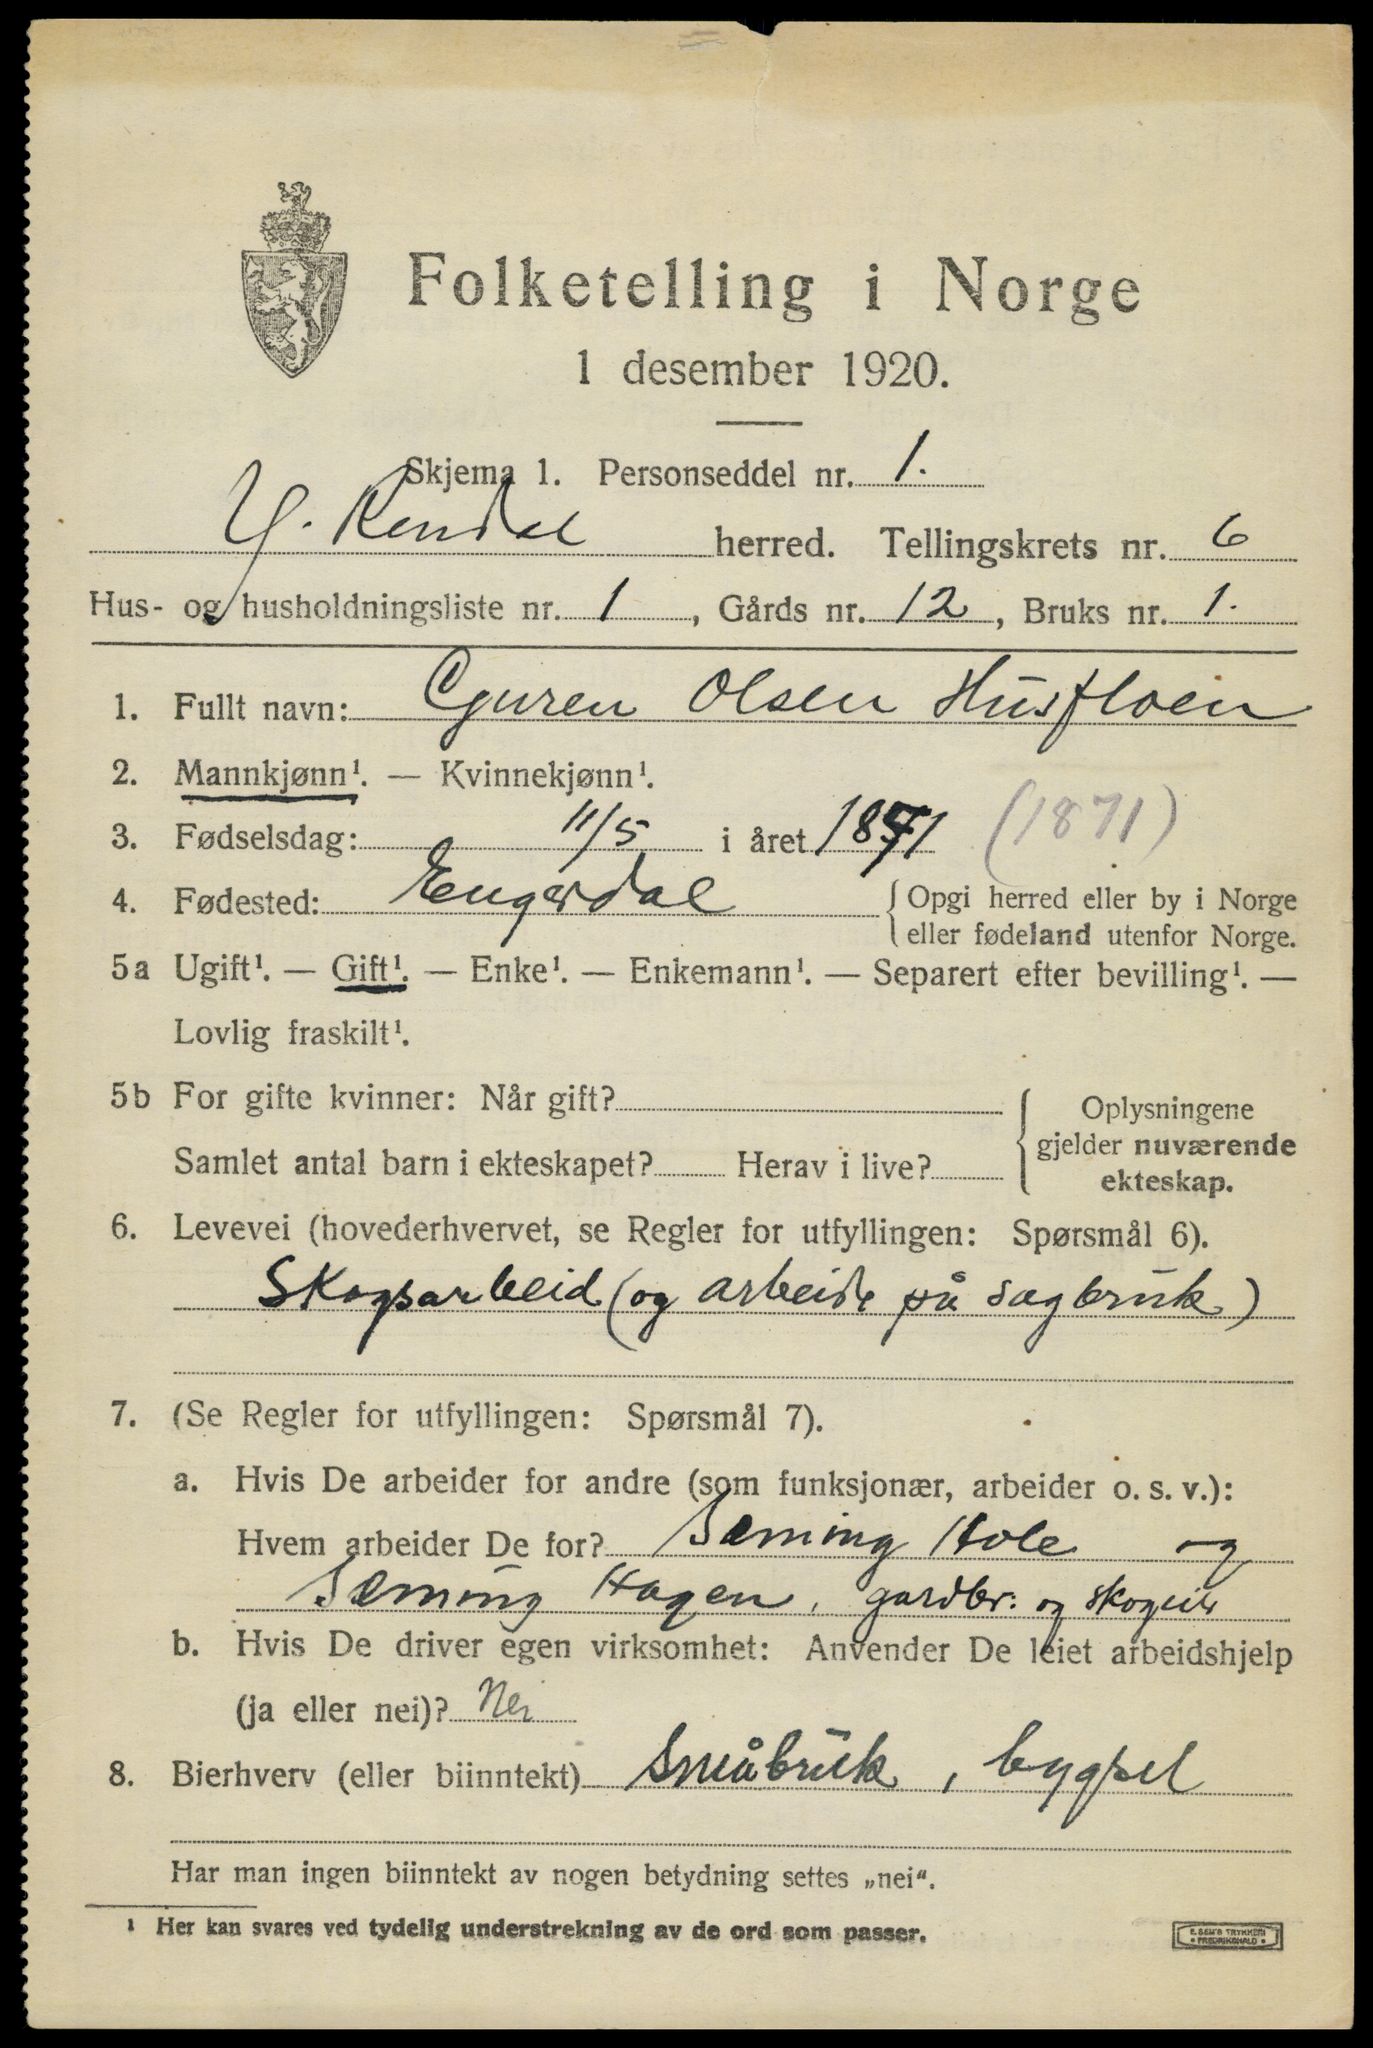 Folketelling i Norge
1 desember 1920.
Skjema 1. Personseddel nr. 1.
Y. Rendal herred. Tellingskrets nr. 6
Hus- og husholdningsliste nr. 1, Gårds nr. 12, Bruks nr. 1.
1. Fullt navn: Olsen Husfloen
2. Mannkjønn¹. — Kvinnekjønn¹.
3. Fødselsdag: 11/5 i året 1871 (1871)
4. Fødested: Engerdal {Opgi herred eller by i Norge
eller fødeland utenfor Norge.
5a Ugift¹. — Gift¹. — Enke¹. — Enkemann¹. — Separert efter bevilling¹. —
Lovlig fraskilt¹.
5b For gifte kvinner: Når gift? { Oplysningene
gjelder nuværende
Samlet antal barn i ekteskapet? Herav i live?
ekteskap.
6. Levevei (hovederhvervet, se Regler for utfyllingen: Spørsmål 6).
Skogsarbeid (og arbeide på sagbruk)
7. (Se Regler for utfyllingen: Spørsmål 7).
a. Hvis De arbeider for andre (som funksjonær, arbeider o. s. v.):
Hvem arbeider De for? Seming Hole og
Seming Hagen, gardbr. og skogeier
b. Hvis De driver egen virksomhet: Anvender De leiet arbeidshjelp
(ja eller nei)? Nei
8. Bierhverv (eller biinntekt) Småbruk, bygsel
Har man ingen biinntekt av nogen betydning settes „nei“.
¹ Her kan svares ved tydelig understrekning av de ord som passer.
E. SEM'S TRYKKERI
• FREDRIKSHALD •